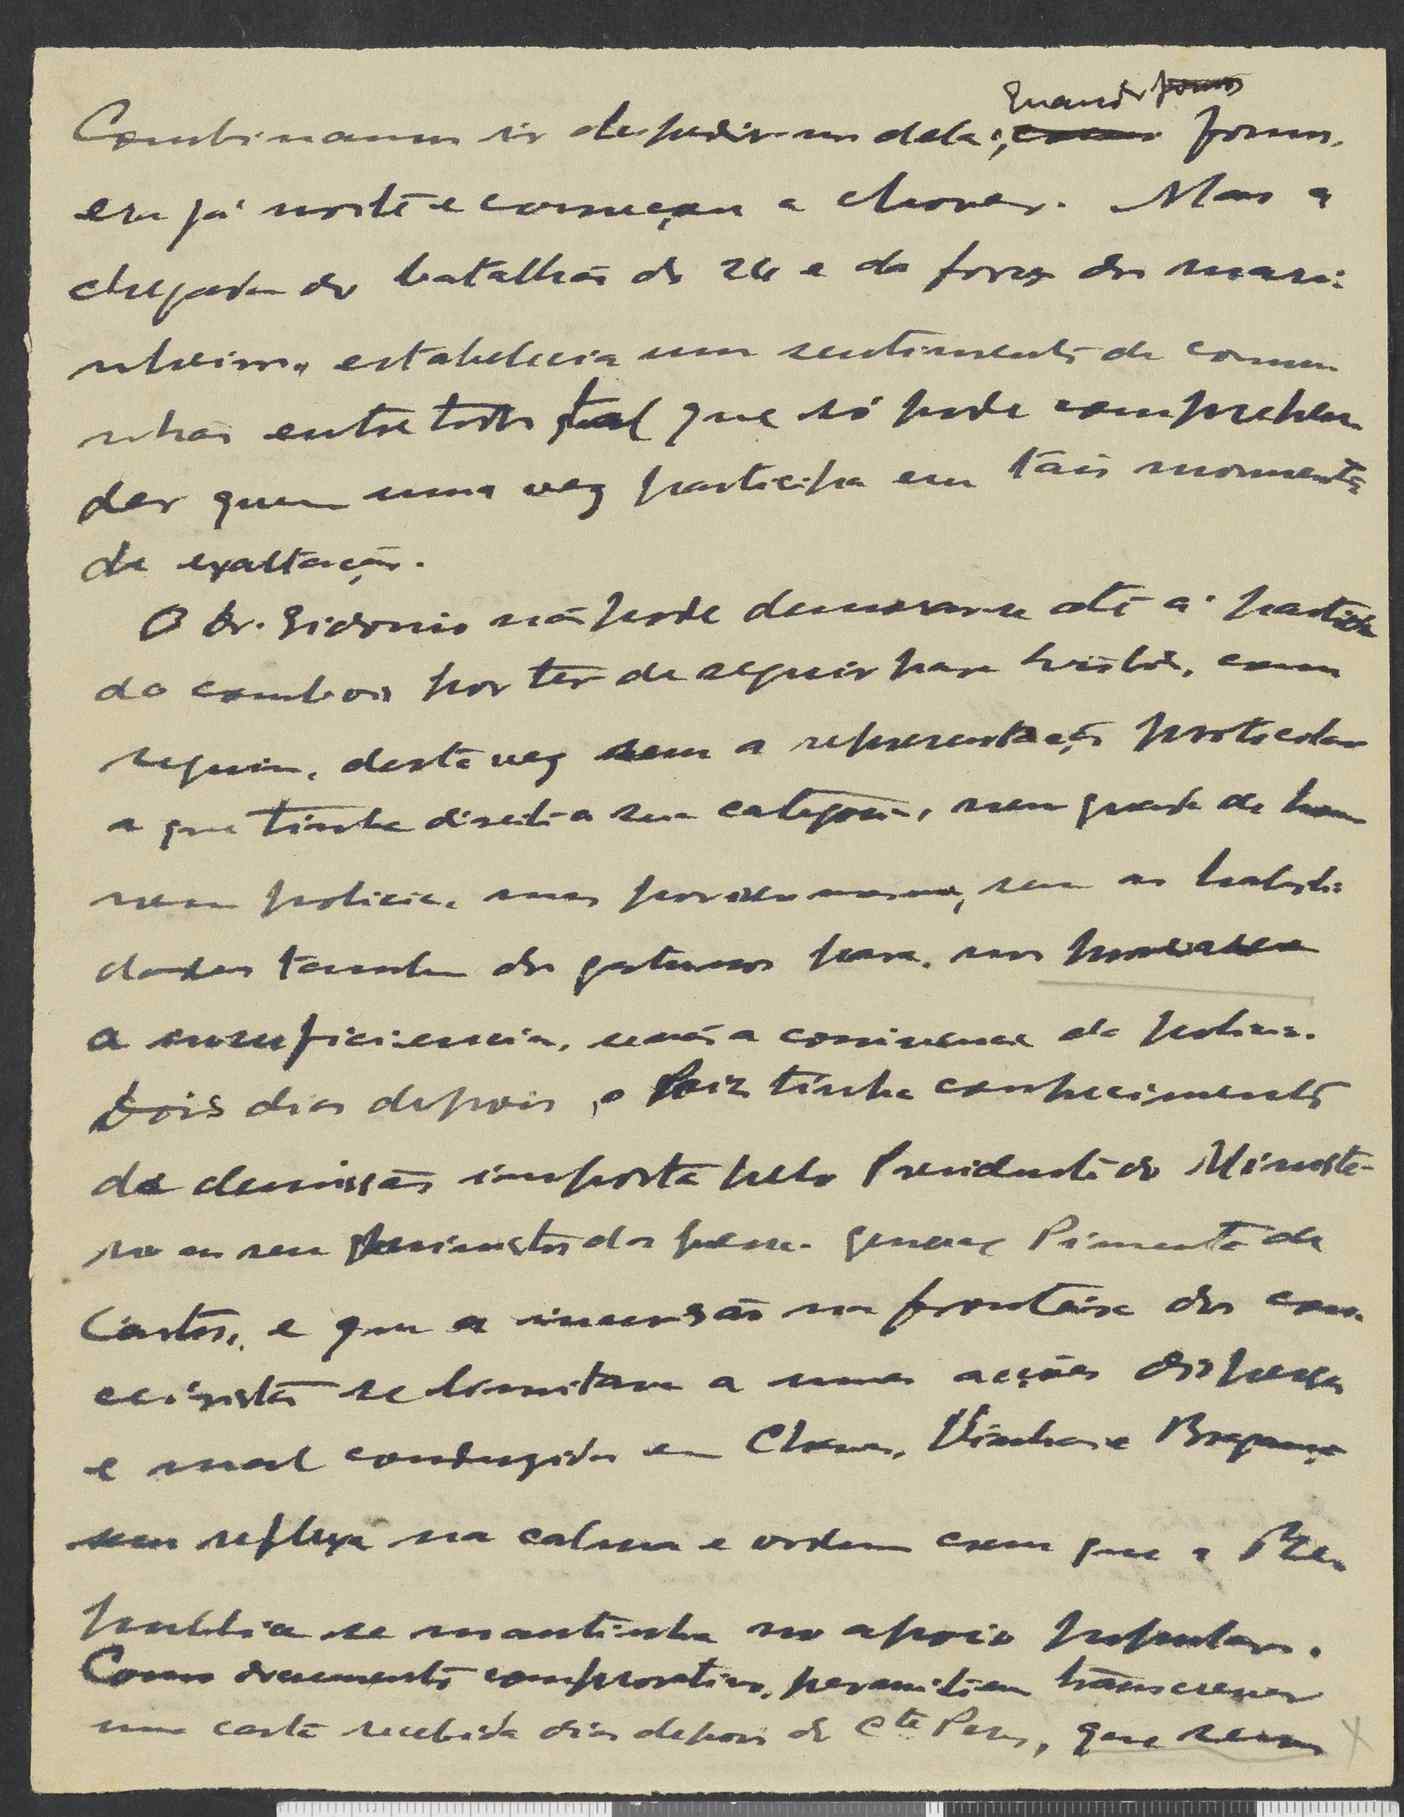 Quando
Combinamos ir despedir-nos dela; fomos,
era já noite e começou a chover. Mas a
chegada do batalhão do 24 e da força dos mari-
nheiros, estabelecia um sentimento de comu-
nhão entre todos tal que só pode comprehen-
der quem uma vez participa em tais momentos
de exaltação.
O Dr. Sidonio não pode demorar-se até á partida
do comboio por ter de seguir para Lisboa, como
seguiu, desta vez sem a representação protocolar
a que tinha direito a sua categoria, nem guarda de honra
nem policia, mas por isso mesmo, sem as habili-
dades tambem dos gatunos para nos
a insuficiencia, senão a conivencia da policia.
Dois dias depois, o Paiz tinha conhecimento
da demissão imposta pelo Presidente do Ministe-
rio ao seu ministro da guerra general Pimenta de
Castro, e que a incursão na fronteira dos con-
ceiristas se limitara a umas acções dispersas
e mal conduzidas em Chaves, Vinhais e Bragança
sem reflexo na calma e ordem com que a Re-
publica se mantinha no apoio popular.
Como documento comprovativo, permitam transcrever
uma carta recebida dias depois do Cte Peres, que